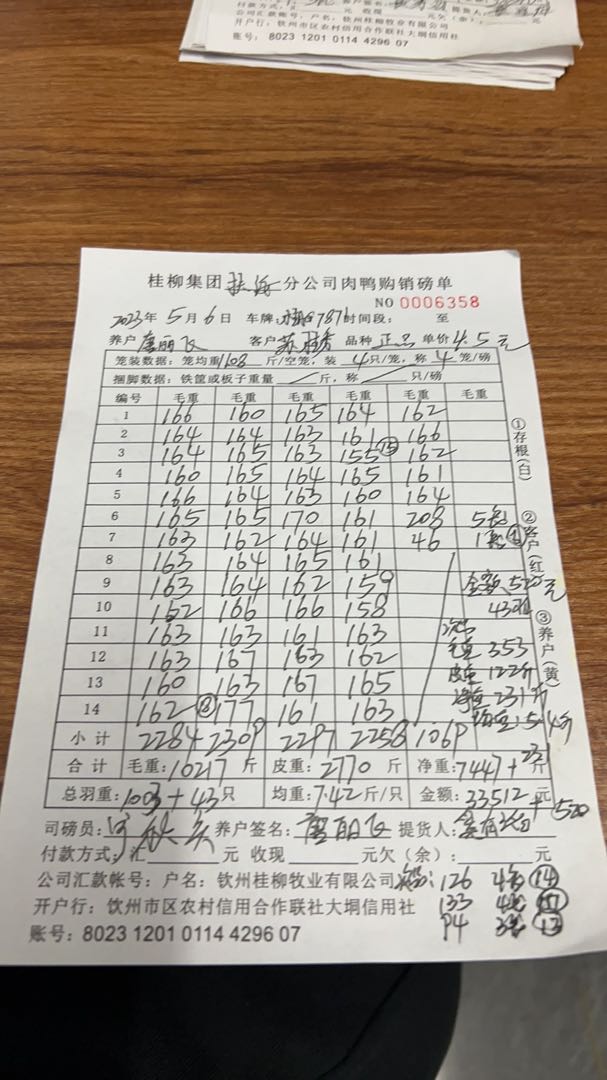 付款方式：汇 元 收现 元欠（余）： 元
公司汇款帐号：户名：钦州桂柳牧业有限公司
开户行：钦州市区农村信用合作联社大垌信用社
账号：8023 1201 0114 4296 07
桂柳集团 分公司肉鸭购销磅单
NO 0006358
2023年5月6日 车牌： 时间段： 至
养户 唐丽飞 客户 苏 品种 正品 单价 4.5元
笼装数据：笼均重 10.8 斤/空笼，装 4只/笼，称 4 笼/磅
捆脚数据：铁筐或板子重量 斤，称 只/磅
编号 毛重 毛重 毛重 毛重 毛重 毛重
1 166 160 165 164 162
2 164 164 163 161 166
3 164 165 163 155 ⑮ 162
4 160 165 164 165 161
5 166 164 163 160 164
6 165 165 170 161 208 5笼
7 163 162 164 161 46 1笼
8 163 164 165 161
9 163 164 162 159 金额 520元
10 162 166 166 158 43只
11 163 163 161 163
12 163 167 163 162 毛重 353
13 160 163 167 165 皮重 122斤
14 162 ⑱ 177 161 163 净重 231斤
均重：5.4斤
小计 2284 2309 2297 2258 1069
合计 毛重：10217 斤 皮重：2770 斤 净重：7447 + 231 斤
总羽重：1003 + 43 只 均重：7.42 斤/只 金额：33512 + 520 元
司磅员： 养户签名：唐丽飞 提货人：
付款方式：汇 元 收现 元欠（余）： 元
公司汇款帐号：户名：钦州桂柳牧业有限公司 126 4笼 ⑭
开户行：钦州市区农村信用合作联社大垌信用社 133 4笼 ⑰
账号：8023 1201 0114 4296 07 94 3笼 ⑬
①存根（白）
②客户（红）
③养户（黄）